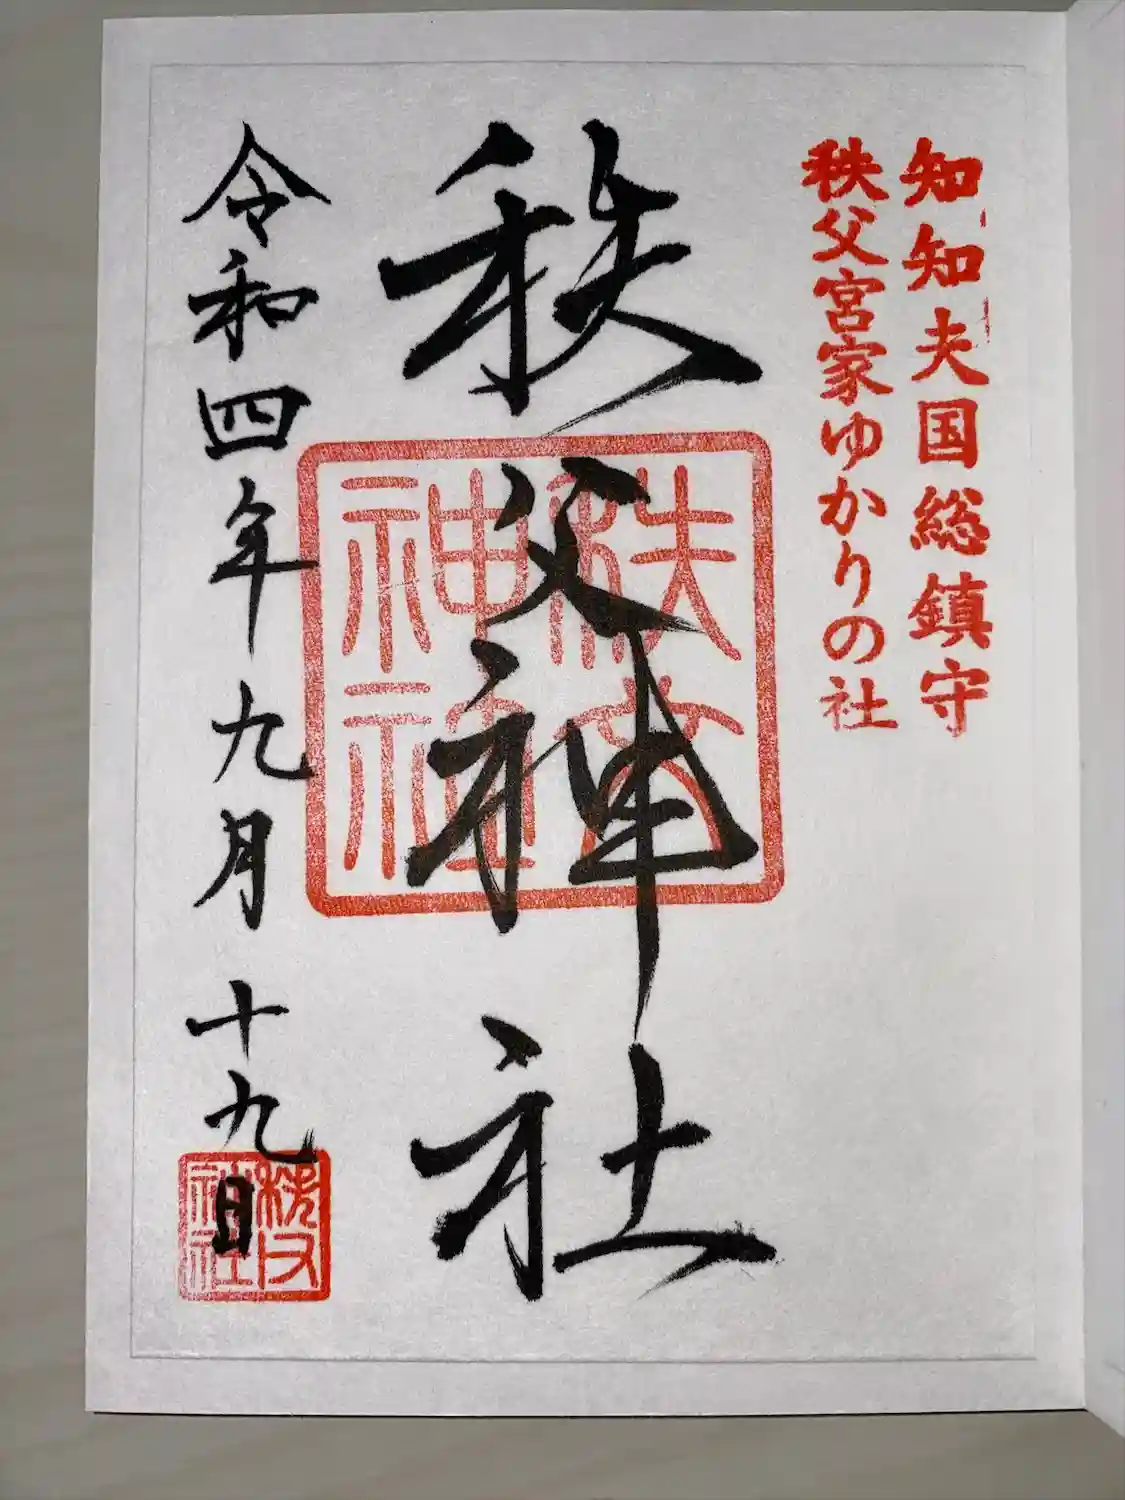 知知夫国総鎮守
秩父宮家ゆかりの社
秩父神社
秩父
神社
令和四年九月十九日
秩父
神社